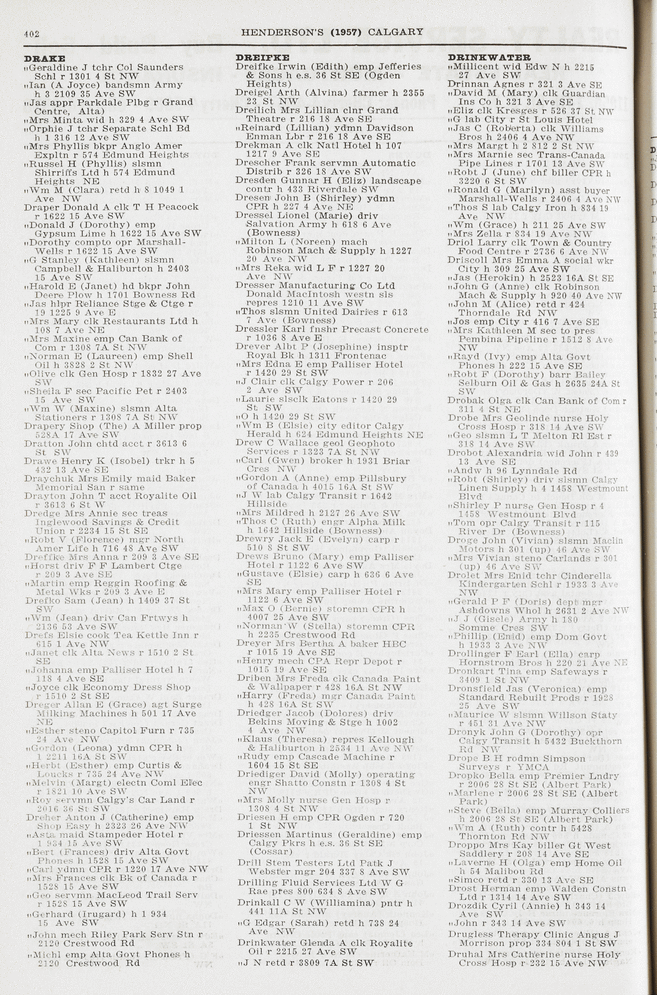 402
HENDERSON'S (1957) CALGARY
DRAKE
"Geraldine J tchr Col Saunders
Schl r 1301 4 St NW
"Ian (A Joyce) bandsmn Army
h 3 2109 35 Ave SW
"Jas appr Parkdale Plbg r Grand
Centre, Alta)
"Mrs Minta wid h 329 4 Ave SW
"Orphie J tchr Separate Schl Bd
h 1 316 12 Ave SW
"Mrs Phyllis bkpr Anglo Amer
Expltn r 574 Edmund Heights
"Russel H (Phyllis) slsmn
Shirriffs Ltd h 574 Edmund
Heights NE
"Wm M (Clara) retd h 8 1049 1
Ave NW
Draper Donald A clk T H Peacock
r 1622 15 Ave SW
"Donald J (Dorothy) emp
Gypsum Lime h 1622 15 Ave SW
"Dorothy compto opr Marshall-
Wells r 1622 15 Ave SW
"G Stanley (Kathleen) slsmn
Campbell & Haliburton h 2403
15 Ave SW
"Harold E (Janet) hd bkpr John
Deere Plow h 1701 Bowness Rd
"Jas hlpr Reliance Stge & Ctge r
19 1225 9 Ave E
"Mrs Mary clk Restaurants Ltd h
108 7 Ave NE
"Mrs Maxine emp Can Bank of
Com r 1308 7A St NW
"Norman E (Laureen) emp Shell
Oil h 3828 2 St NW
"Olive clk Gen Hosp r 1832 27 Ave
SW
"Sheila F sec Pacific Pet r 2403
15 Ave SW
"Wm W (Maxine) slsmn Alta
Stationers r 1308 7A St NW
Drapery Shop (The) A Miller prop
528A 17 Ave SW
Dratton John chtd acct r 3613 6
St SW
Drawe Henry K (Isobel) trkr h 5
432 13 Ave SE
Draychuk Mrs Emily maid Baker
Memorial San r same
Drayton John T acct Royalite Oil
r 3613 6 St W
Dredge Mrs Annie sec treas
Inglewood Savings & Credit
Union r 2234 15 St SE
"Robt V (Florence) mgr North
Amer Life h 716 48 Ave SW
Dreffke Mrs Anna r 209 3 Ave SE
"Horst driv F F Lambert Ctge
r 209 3 Ave SE
"Martin emp Reggin Roofing &
Metal Wks r 209 3 Ave E
Drefko Sam (Jean) h 1409 37 St
SW
"Wm (Jean) driv Can Frtwys h
2136 53 Ave SW
Drefs Elsie cook Tea Kettle Inn r
615 1 Ave NW
"Janet clk Alta News r 1510 2 St
SE
"Johanna emp Palliser Hotel h 7
118 4 Ave SE
"Joyce clk Economy Dress Shop
r 1510 2 St SE
Dreger Allan E (Grace) agt Surge
Milking Machines h 501 17 Ave
NE
"Esther steno Capitol Furn r 735
24 Ave NW
"Gordon (Leona) ydmn CPR h
1 2211 16A St SW
"Herbt (Esther) emp Curtis &
Loucks r 735 24 Ave NW
"Melvin (Marg) electn Coml Elec
r 1821 10 Ave SW
"Roy servmn Calgy's Car Land r
2016 36 St SW
Dreher Anton J (Catherine) emp
Shop Easy h 2323 26 Ave NW
"Asta maid Stampeder Hotel r
1 934 15 Ave SW
"Bert (Frances) driv Alta Govt
Phones h 1528 15 Ave SW
"Carl ydmn CPR r 1220 17 Ave NW
"Mrs Frances clk Bk of Canada r
1528 15 Ave SW
"Geo servmn MacLeod Trail Serv
r 1528 15 Ave SW
"Gerhard (Irugard) h 1 934
15 Ave SW
"John mech Riley Park Serv Stn r
2120 Crestwood Rd
"Michl emp Alta Govt Phones h
2120 Crestwood Rd
DREIFKE
Dreifke Irwin (Edith) emp Jefferies
& Sons h e.s. 36 St SE (Ogden
Heights)
Dreigel Arth (Alvina) farmer h 2355
23 St NW
Dreilich Mrs Lillian clnr Grand
Theatre r 216 18 Ave SE
"Reinard (Lillian) ydmn Davidson
Enman Lbr r 216 18 Ave SE
Drekman A clk Natl Hotel h 107
1217 9 Ave SE
Drescher Frank servmn Automatic
Distrib r 326 18 Ave SW
Dresden Gunnar H (Eliz) landscape
contr h 433 Riverdale SW
Dresen John B (Shirley) ydmn
CPR h 227 4 Ave NE
Dressel Lionel (Marie) driv
Salvation Army h 618 6 Ave
(Bowness)
"Milton L (Noreen) mach
Robinson Mach & Supply h 1227
20 Ave NW
"Mrs Reka wid L F r 1227 20
Ave NW
Dresser Manufacturing Co Ltd
Donald MacIntosh westn sls
repres 1210 11 Ave SW
"Thos slsmn United Dairies r 613
7 Ave (Bowness)
Dressler Karl fnshr Precast Concrete
r 1036 8 Ave E
Drever Albt P (Josephine) insptr
Royal Bk h 1311 Frontenac
"Mrs Edna E emp Palliser Hotel
r 1420 29 St SW
"J Clair clk Calgy Power r 206
2 Ave SW
"Laurie slsclk Eatons r 1420 29
St SW
"O h 1420 29 St SW
"Wm B (Elsie) city editor Calgy
Herald h 624 Edmund Heights NE
Drew C Wallace geol Geophoto
Services r 1323 7A St NW
"Carl (Gwen) broker h 1931 Briar
Cres NW
"Gordon A (Anne) emp Pillsbury
of Canada h 4015 16A St SW
"J W lab Calgy Transit r 1642
Hillside
"Mrs Mildred h 2127 26 Ave SW
"Thos C (Ruth) engr Alpha Milk
h 1642 Hillside (Bowness)
Drewry Jack E (Evelyn) carp r
510 8 St SW
Drews Bruno (Mary) emp Palliser
Hotel r 1122 6 Ave SW
"Gustave (Elsie) carp h 636 6 Ave
SE
"Mrs Mary emp Palliser Hotel r
1122 6 Ave SW
"Max O (Bernie) storemn CPR h
4007 25 Ave SW
"Norman W (Stella) storemn CPR
h 2235 Crestwood Rd
Dreyer Mrs Bertha A baker HBC
r 1015 19 Ave SE
"Henry mech CPA Repr Depot r
1015 19 Ave SE
Driben Mrs Freda clk Canada Paint
& Wallpaper r 428 16A St NW
"Harry (Freda) mgr Canada Paint
h 428 16A St SW
Driedger Jacob (Dolores) driv
Bekins Moving & Stge h 1002
4 Ave NW
"Klaus (Theresa) repres Kellough
& Haliburton h 2534 11 Ave NW
"Rudy emp Cascade Machine r
1604 15 St SE
Driediger David (Molly) operating
engr Shatto Constn r 1308 4 St
NW
"Mrs Molly nurse Gen Hosp r
1308 4 St NW
Driesen H emp CPR Ogden r 720
1 St NW
Driessen Martinus (Geraldine) emp
Calgy Pkrs h e.s. 36 St SE
(Cossar)
Drill Stem Testers Ltd Patk J
Webster mgr 204 337 8 Ave SW
Drilling Fluid Services Ltd W G
Rae pres 800 634 8 Ave SW
Drinkall C W (Williamina) pntr h
441 11A St NW
"G Edgar (Sarah) retd h 738 24
Ave NW
Drinkwater Glenda A clk Royalite
Oil r 2215 27 Ave SW
"J N retd r 3809 7A St SW
DRINKWATER
"Millicent wid Edw N h 2215
27 Ave SW
Drinnan Agnes r 321 3 Ave SE
"David M (Mary) clk Guardian
Ins Co h 321 3 Ave SE
"Eliz clk Kresges r 526 37 St NW
"G lab City r St Louis Hotel
"Jas C (Roberta) clk Williams
Bros h 2406 4 Ave NW
"Mrs Margt h 2 812 2 St NW
"Mrs Marnie sec Trans-Canada
Pipe Lines r 1701 13 Ave SW
"Robt J (June) chf biller CPR h
3220 6 St SW
"Ronald G (Marilyn) asst buyer
Marshall-Wells r 2406 4 Ave NW
"Thos S lab Calgy Iron h 834 19
Ave NW
"Wm (Grace) h 211 25 Ave SW
"Mrs Zella r 834 19 Ave NW
Driol Larry clk Town & Country
Food Centre r 2736 6 Ave NW
Driscoll Mrs Emma A social wkr
City h 309 25 Ave SW
"Jas (Herokin) h 2523 16A St SE
"John G (Anne) clk Robinson
Mach & Supply h 920 40 Ave NW
"John M (Alice) retd r 424
Thorndale Rd NW
"Jos emp City r 416 7 Ave SE
"Mrs Kathleen M sec to pres
Pembina Pipeline r 1512 8 Ave
NW
"Rayd (Ivy) emp Alta Govt
Phones h 222 15 Ave SE
"Robt F (Dorothy) barr Bailey
Selburn Oil & Gas h 2635 24A St
SW
Drobak Olga clk Can Bank of Com r
311 4 St NE
Drobe Mrs Geolinde nurse Holy
Cross Hosp r 318 14 Ave SW
"Geo slsmn L T Melton Rl Est r
318 14 Ave SW
Drobot Alexandria wid John r 439
13 Ave SE
"Andw h 96 Lynndale Rd
"Robt (Shirley) driv slsmn Calgy
Linen Supply h 4 1458 Westmount
Blvd
"Shirley P nurse Gen Hosp r 4
1458 Westmount Blvd
"Tom opr Calgy Transit r 115
River Dr (Bowness)
Droge John (Vivian) slsmn Maclin
Motors h 301 (up) 46 Ave SW
"Mrs Vivian steno Carlands r 301
(up) 46 Ave SW
Drolet Mrs Enid tchr Cinderella
Kindergarten Schl r 1933 3 Ave
NW
"Gerald P F (Doris) dept mgr
Ashdowns Whol h 2631 2 Ave NW
"J J (Gisele) Army h 180
Somme Cres SW
"Phillip (Enid) emp Dom Govt
h 1933 3 Ave NW
Drollinger F Earl (Ella) carp
Hornstrom Bros h 220 21 Ave NE
Dronkart Tina emp Safeways r
3409 1 St NW
Dronsfield Jas (Veronica) emp
Standard Rebuilt Prods r 1928
25 Ave SW
"Maurice W slsmn Willson Staty
r 451 31 Ave NW
Dronyk John G (Dorothy) opr
Calgy Transit h 5432 Buckthorn
Rd NW
Drope B H rodmn Simpson
Surveys r YMCA
Dropko Bella emp Premier Lndry
r 2006 28 St SE (Albert Park)
"Marlene r 2006 28 St SE (Albert
Park)
"Steve (Bella) emp Murray Colliers
h 2006 28 St SE (Albert Park)
"Wm A (Ruth) contr h 5428
Thornton Rd NW
Droppo Mrs Kay biller Gt West
Saddlery r 208 14 Ave SE
"Laverne H (Olga) emp Home Oil
h 54 Malibou Rd
"Simco retd r 330 13 Ave SE
Drost Herman emp Walden Constn
Ltd r 1314 14 Ave SW
Drozdik Cyril (Annie) h 343 14
Ave SW
"John r 343 14 Ave SW
Drugless Therapy Clinic Angus J
Morrison prop 334 804 1 St SW
Druhal Mrs Catherine nurse Holy
Cross Hosp r 232 15 Ave NW